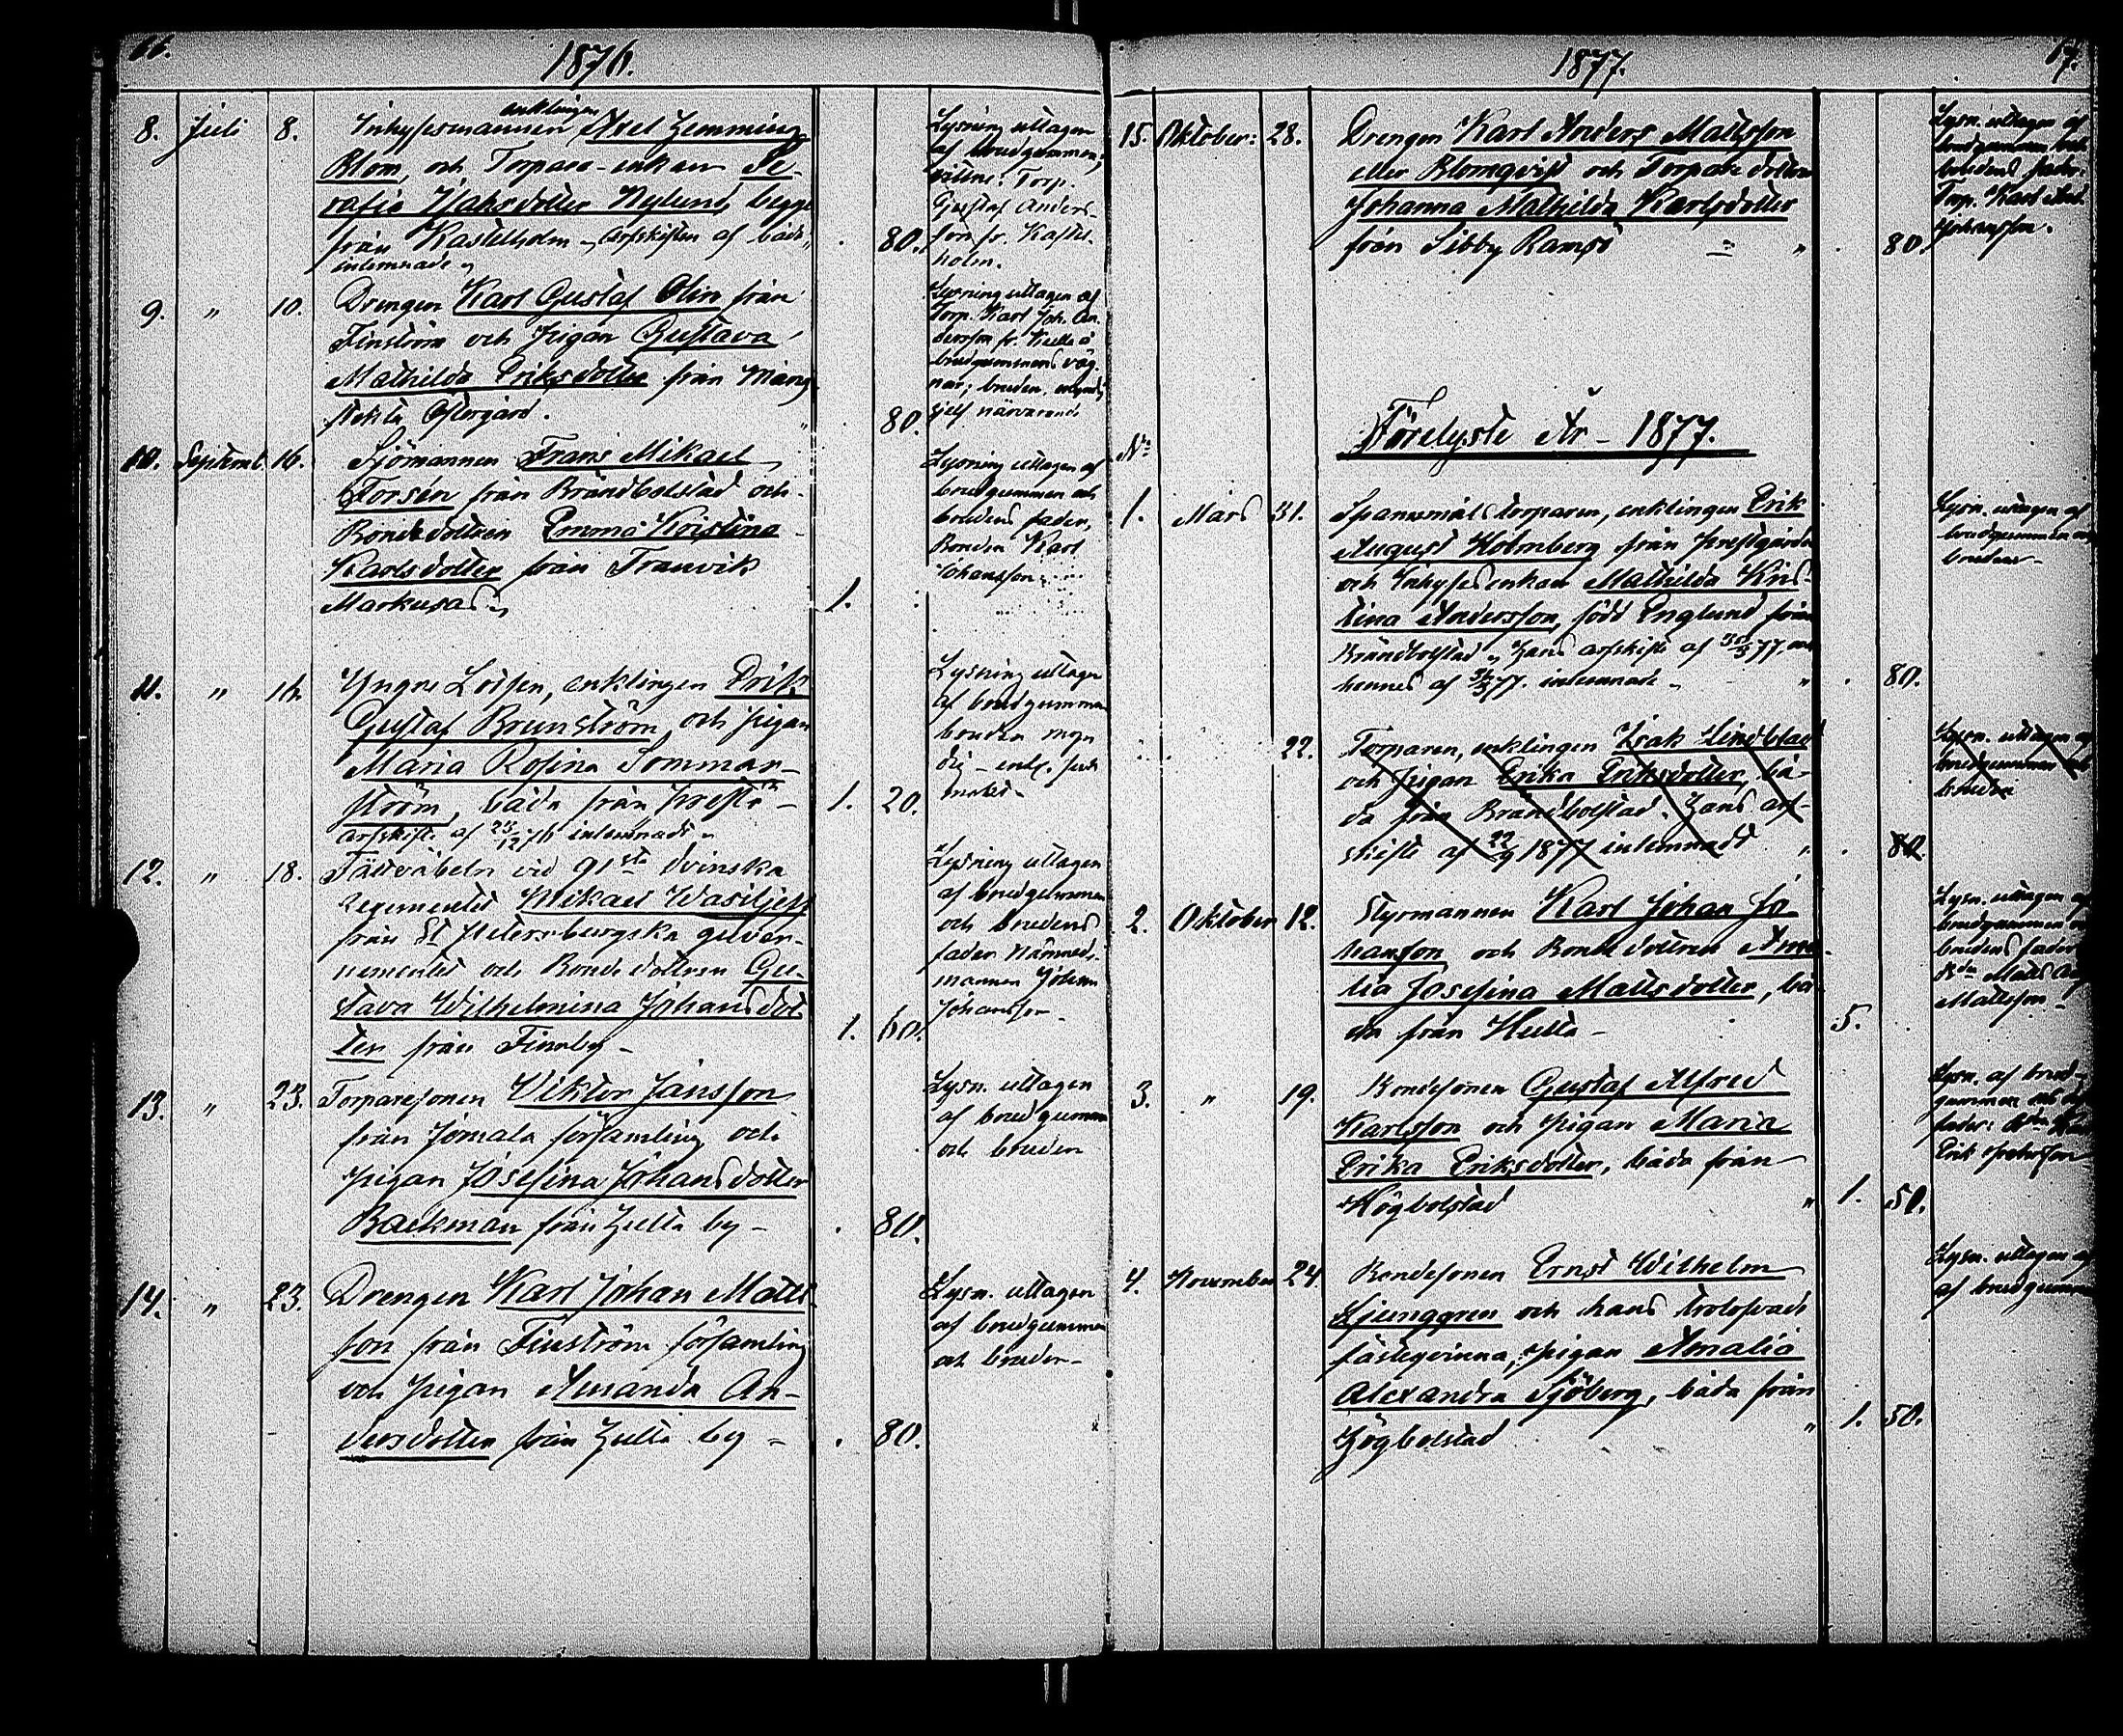 1876.
8. Juli 8. Inhysesmannen enklingen Axel Hemming
Blom, och Torpare-enkan Se-
rafia Isaksdotter Nylund, begge
från Kastelholm, arfskiften af båda
inlemnade 80.
Lysning uttagen
af brudgummen;
vittne: Torp.
Gustaf Anders-
son fr. Kastel-
holm.
9. " 10. Drengen Karl Gustaf Olin från
Finström och Pigan Gustava
Mathilda Eriksdotter från Mång-
stekta Östergård. " 80.
Lysning uttagen af
Torp. Karl Joh. An-
dersson fr. Hulta å
brudgummens väg-
nar; bruden
sjelf närvarande
10. Septemb. 16. Sjömannen Frans Mikael
Forsén från Brändbolstad och
Bondedottren Emma Kristina
Karlsdotter från Tranvik
Markusas 1.
Lysning uttagen af
brudgummen och
brudens fader,
Bonden Karl
Johansson.
11. " 16. Yngre Lotsen, enklingen Erik
Gustaf Brunström, och pigan
Maria Rosina Sommar-
ström, båda från Prestö
arfskifte af 23/12 76 inlemnadt 1. 20.
Lysning uttagen
af brudgummen
bruden myn
dig
12. " 18. Fältväbeln vid 91sta Dvinska
regementet Mikael Wasiljeff
från St Petersburgska guver-
nementet och Bondedottren Gu-
stava Wilhelmina Johansdot-
ter från Finnby 1. 60.
Lysning uttagen
af brudgummen
och brudens
fader Nämnde-
mannen Johan
Johansson
13. " 23. Torparesonen Viktor Jansson
från Jomala församling och
Pigan Josefina Johansdotter
Backman från Hulta by . 80.
Lysn. uttagen
af brudgummen
och bruden
14. " 23. Drengen Karl Johan Matts-
son från Finström församling
och Pigan Amanda An-
dersdotter från Hulta by . 80.
Lysn. uttagen
af brudgummen
och bruden
1877. 17.
15. Oktober: 28. Drengen Karl Anders Mattsson
eller Blomqvist och Torparedottren
Johanna Mathilda Karlsdotter
från Sibby Ramsö " . 80.
Lysn. uttagen af
brudgummen och
brudens fader:
Torp. Karl And.
Johansson.
Förelyste År - 1877.
No
1. Mars 31. Spanmålstorparen, enklingen Erik
August Holmberg från Prestgården
och Inhysesenkan Mathilda Kris-
tina Andersson, född Englund från
Brändbolstad, Hans arfskifte af 77, och
hennes af 77. inlemnade " . 80.
Lysn. uttagen af
brudgummen och
bruden
22. Torparen, enklingen Isak Lindblad
och Pigan Erika Eriksdotter, bå-
da från Brändbolstad. Hans arf-
skifte af 22/9 1877 inlemnadt " . 80.
Lysn. uttagen af
brudgummen och
bruden
2. Oktober 12. Styrmannen Karl Johan Jo-
hansson och Bondedottren Ama-
lia Josefina Mattsdotter, bå-
da från Hulta 5.
Lysn. uttagen af
brudgummen och
brudens fader
Bdn Matts And.
Mattsson
3. " 19. Bondesonen Gustaf Alfred
Karlsson och Pigan Maria
Erika Eriksdotter, båda från
Högbolstad " 1. 50.
Lysn. af brud-
gummen och
fader: Bdn
Erik Petersson
4. November 24. Bondesonen Ernst Wilhelm
Ljunggren och hans trolofvade
fästeqvinna, Pigan Amalia
Alexandra Sjöberg, båda från
Högbolstad " 1. 50.
Lysn. uttagen
af brudgummen